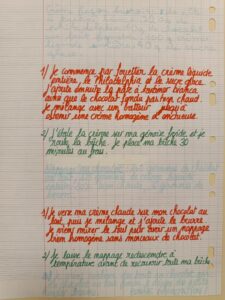 1/ Je commence par fouetter la crème liquide
entière, le Philadelphia et le sucre glace.
J'ajoute ensuite la pâte à tartiner bianca
ainsi que le chocolat fondu pas trop chaud.
Je mélange avec un batteur jusqu'à
obtenir une crème homogène et onctueuse.
2/ J'étale la crème sur ma génoise froide et je
roule la bûche. Je place ma bûche 30
minutes au frais.
1/ Je verse ma crème chaude sur mon chocolat au
lait, puis je mélange et j'ajoute le beurre.
Je viens mixer le tout pour avoir un nappage
bien homogène sans morceaux de chocolat.
2/ Je laisse le nappage redescendre à
température avant de recouvrir toute ma bûche.